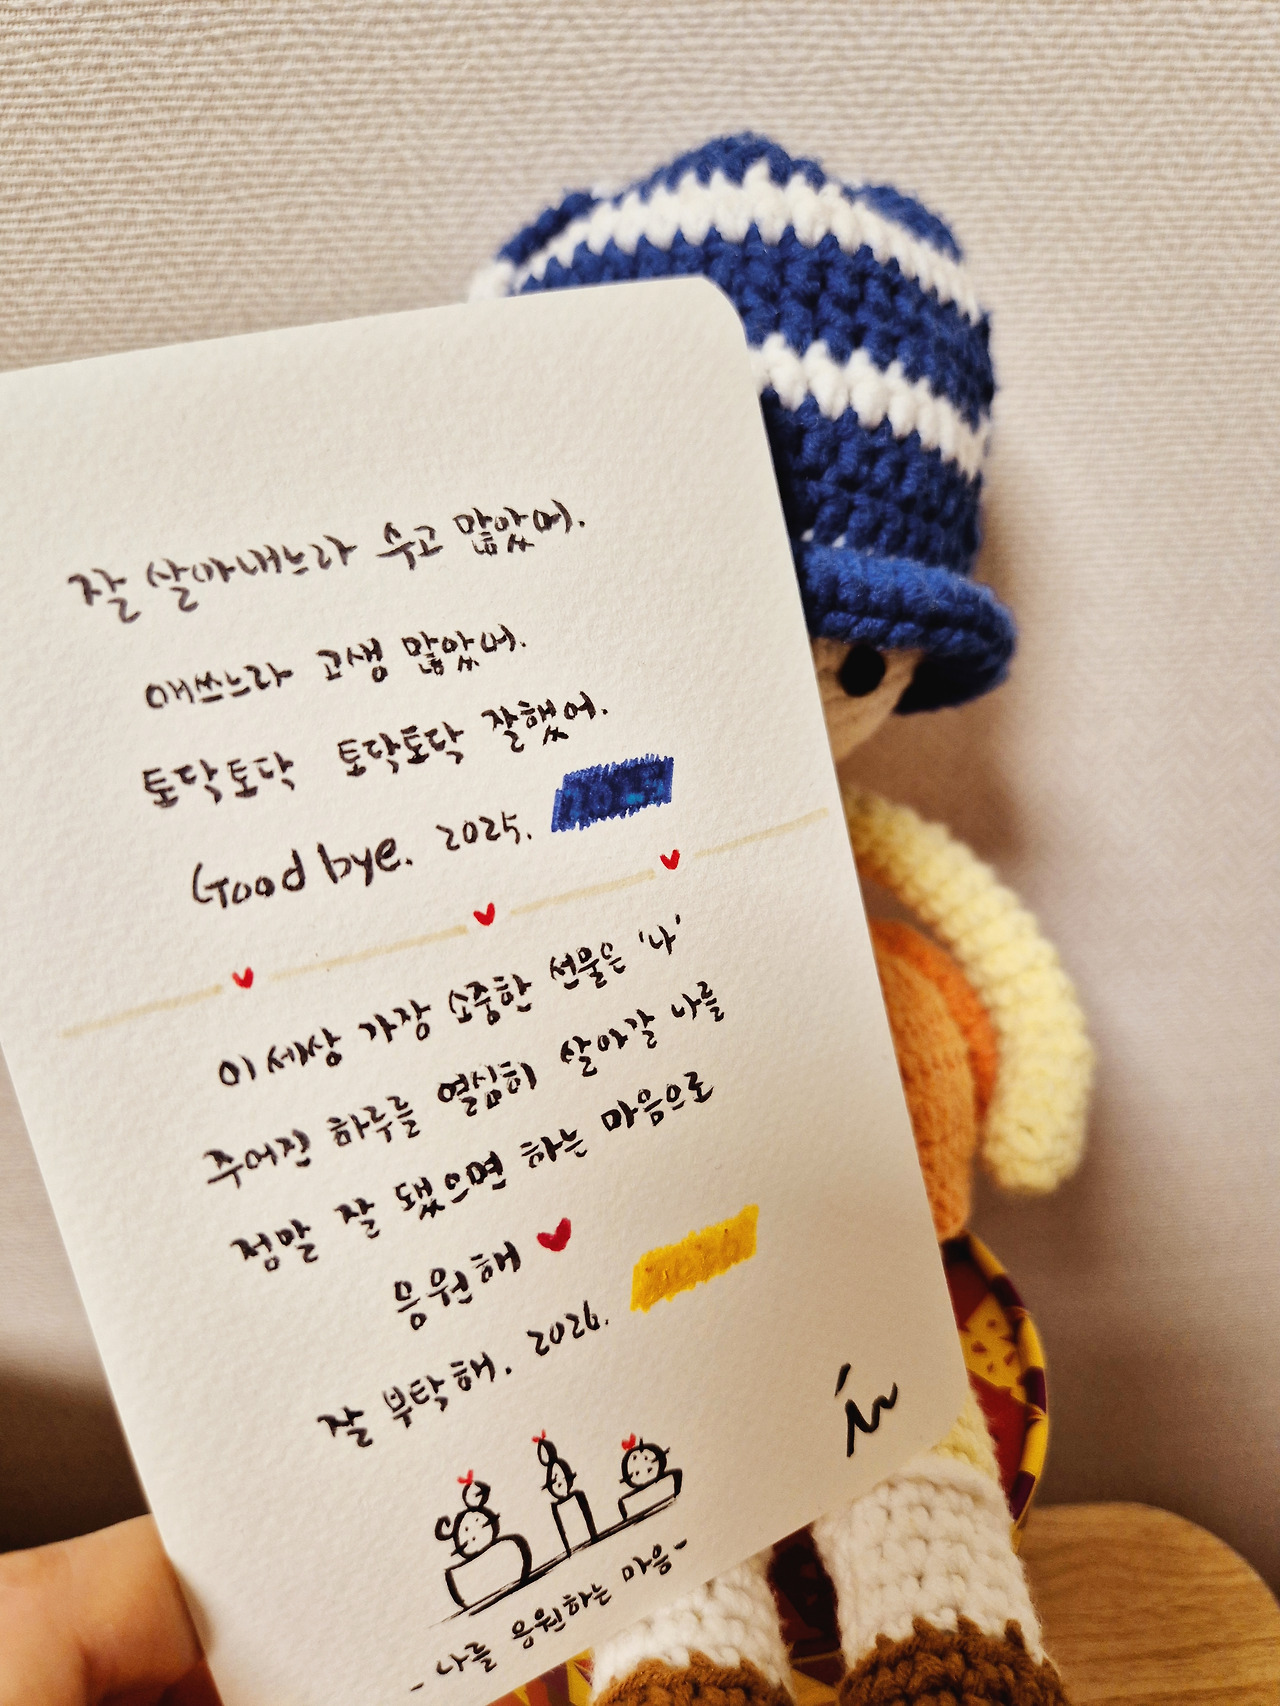 잘 살아내느라 수고 많았어.
애쓰느라 고생 많았어.
토닥토닥 토닥토닥 잘했어.
Good bye. 2025.
이 세상 가장 소중한 선물은 '나'
주어진 하루를 열심히 살아갈 나를
정말 잘 됐으면 하는 마음으로
응원해
잘 부탁해. 2026.
- 나를 응원하는 마음 -